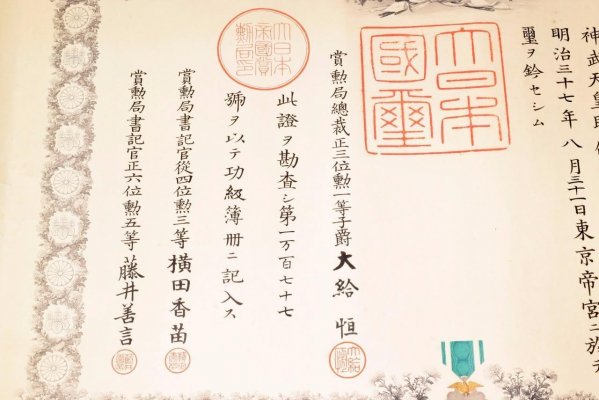 神武天皇即位
明治三十七年八月三十一日東京帝宮ニ於テ
璽ヲ鈐セシム
大日本
國璽
賞勲局總裁正三位勲一等子爵大給恒
此證ヲ勘査シ第一万百七十七
號ヲ以テ功級簿冊ニ記入ス
大日本
帝國賞
勲局印
賞勲局書記官從四位勲三等横田香苗
賞勲局書記官正六位勲五等藤井善言